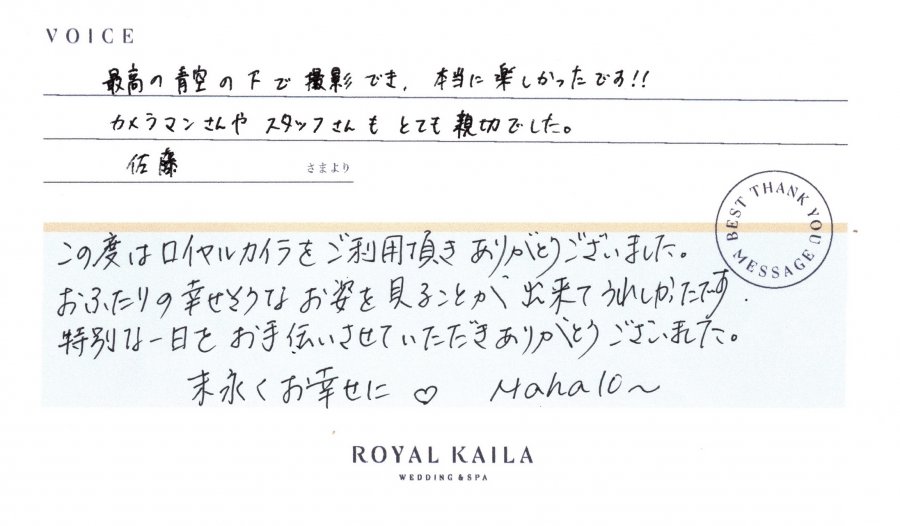 VOICE
最高の青空の下で撮影でき、本当に楽しかったです!!
カメラマンさんや スタッフさんも とても 親切でした。
佐藤 さまより
BEST THANK YOU MESSAGE
この度はロイヤルカイラをご利用頂きありがとうございました。
おふたりの幸せそうなお姿を見ることが出来てうれしかたです.
特別な一日をお手伝いさせていただきありがとうございました。
末永くお幸せに♡ Mahalo~
ROYAL KAILA
WEDDING & SPA